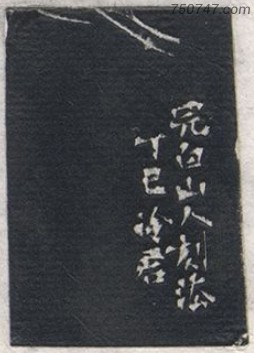 完白山人刻法
丁巳冷君
760747.com